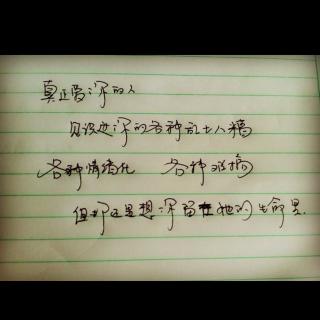 真正爱你的人
见识过你的各种乱七八糟
各种情绪化 各种难搞
但却还是想你留在她的生命里.